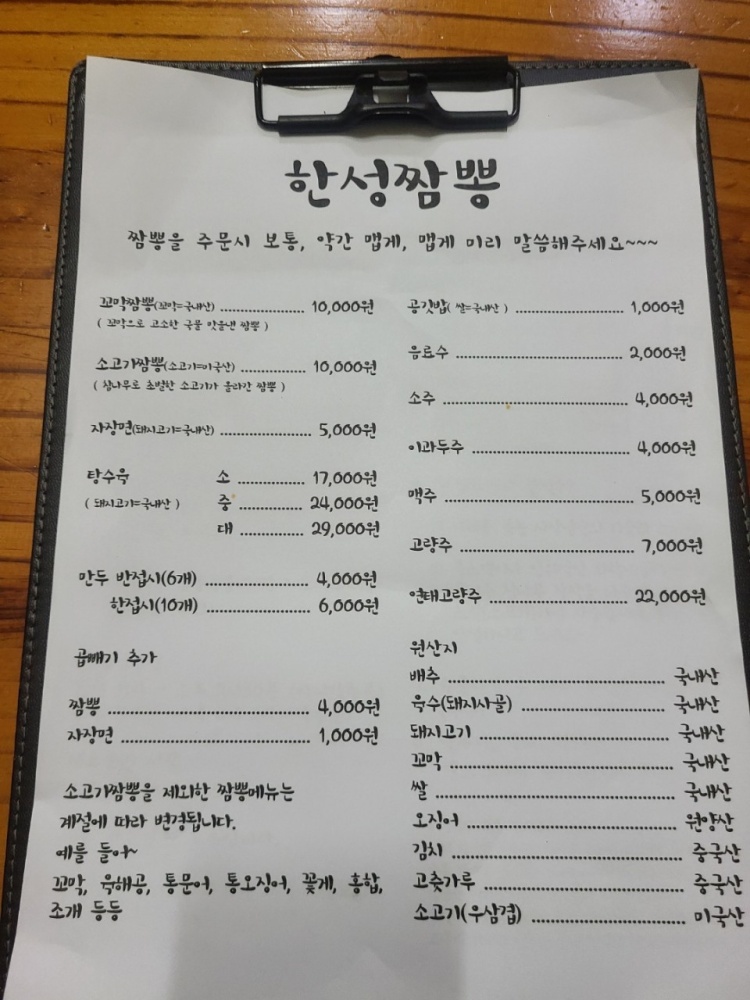 한성짬뽕
짬뽕을 주문시 보통, 약간 맵게, 맵게 미리 말씀해주세요~~~
꼬막짬뽕(꼬막=국내산) 10,000원
( 꼬막으로 고소한 국물 맛을낸 짬뽕 )
소고기짬뽕(소고기=미국산) 10,000원
( 참나무로 초벌한 소고기가 올라간 짬뽕 )
자장면(돼지고기=국내산) 5,000원
탕수육 소 17,000원
( 돼지고기=국내산 ) 중 24,000원
대 29,000원
만두 반접시(6개) 4,000원
한접시(10개) 6,000원
곱빼기 추가
짬뽕 4,000원
자장면 1,000원
소고기짬뽕을 제외한 짬뽕메뉴는
계절에 따라 변경됩니다.
예를 들어~
꼬막, 육해공, 통문어, 통오징어, 꽃게, 홍합,
조개 등등
공깃밥( 쌀=국내산 ) 1,000원
음료수 2,000원
소주 4,000원
이과두주 4,000원
맥주 5,000원
고량주 7,000원
연태고량주 22,000원
원산지
배추 국내산
육수(돼지사골) 국내산
돼지고기 국내산
꼬막 국내산
쌀 국내산
오징어 원양산
김치 중국산
고춧가루 중국산
소고기(우삼겹) 미국산